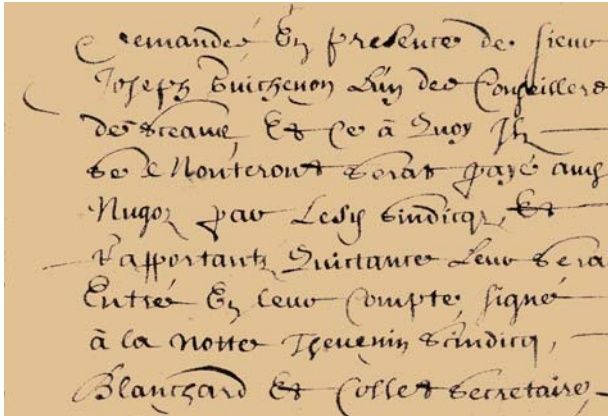 demandée En presence de sieur
Joseph Guichenon L'un des Conseillers
de sceans Et Ce à Quoy Ils
se Monteront serat payé aus
par Lesd sindicqz, Et
Rapportantz Quictance Leur sera
Entré En leur Compte, signé
à la notte Thevenin scindicq,
Blanchard Et Collet secretaire,